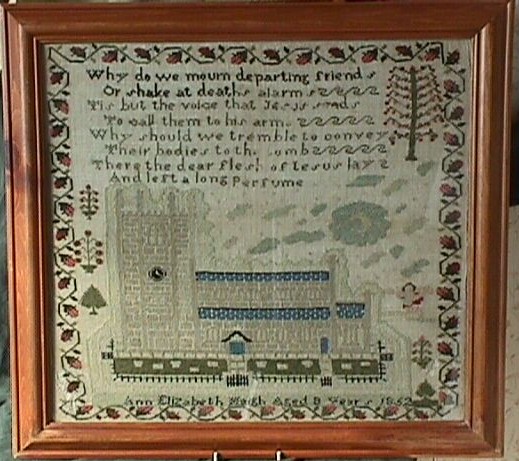 Why do we mourn departing friends
Or shake at deaths alarms
Tis but the voice that Jesus sends
To call them to his arms
Why should we tremble to convey
Their bodies to the tomb
There the dear flesh of Iesus lay
And left a long perfume
Ann Elizabeth Aged 8 Years 1852